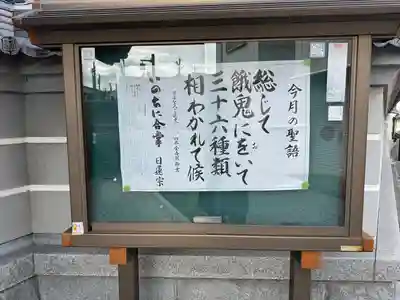 今月の聖語
総じて
餓鬼にをいて
お
三十六種類
相わかれて候
いのちに合掌 日蓮宗